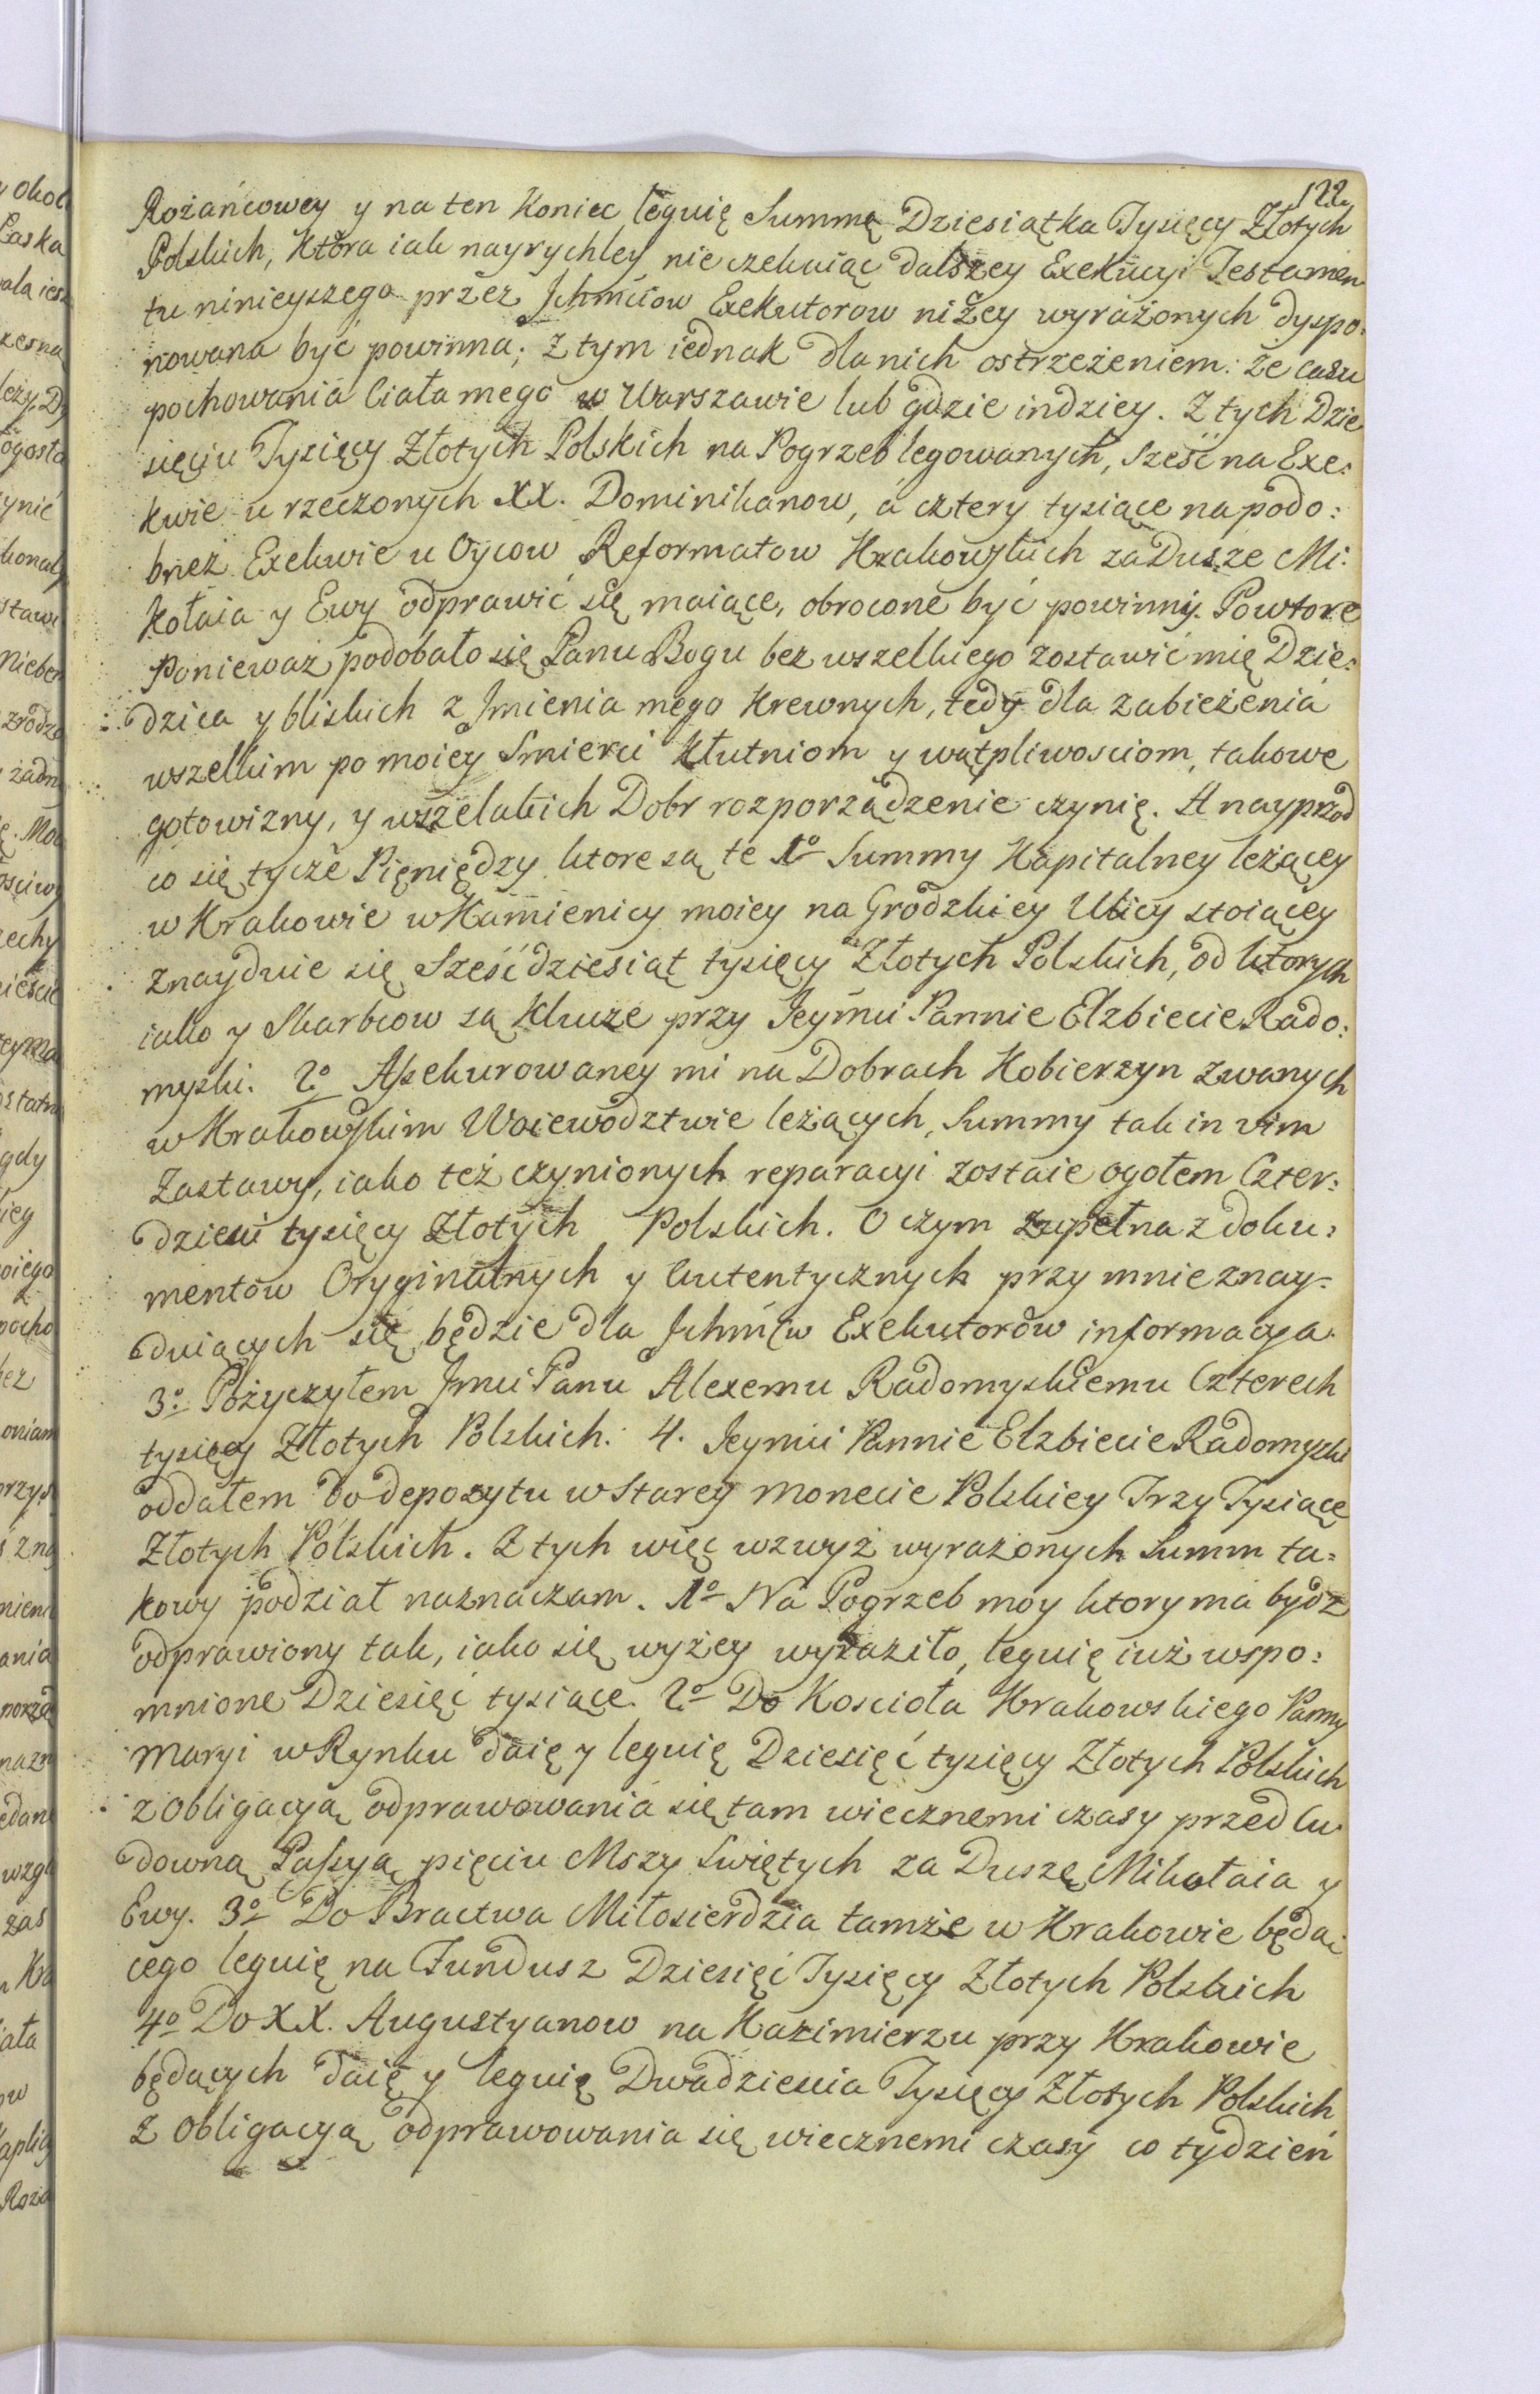 122
Rożańcowey y na ten Koniec leguię Summę Dziesiątka Tysięcy Złotych
Polskich, Ktora iak nayrychley nie czekaiąc dalszey Exekucyi Testamen
tu ninieyszego przez Ichmciow Exekutorow niżey wyrażonych dyspo:
nowana być powinna; z tym iednak dla nich ostrzeżeniem: że casu
pochowania Ciała mego w Warszawie lub gdzie indziey. Z tych Dzie
sięciu Tysięcy Złotych Polskich na Pogrzeb legowanych, sześć na Exe:
kwie u rzeczonych XX. Dominikanow, á cztery tysiące na podo:
bneż Exekwie u Oycow Reformatow Krakowskich za Dusze Mi:
kołaia y Ewy odprawić się maiące, obrocone być powinny. Powtore
Ponieważ podobało się Panu Bogu bez wszelkiego zostawić mię Dzie:
dzica y bliskich z Imienia mego Krewnych, tedy dla zabieżenia
wszelkim po moiey Smierci Kłutniom y wątpliwosciom, takowe
gotowizny, y wszelakich Dobr rozporządzenie czynię. A nayprzod
co się tycze Pięniędzy ktore są te 1º Summy Kapitalney leżącey
w Krakowie w Kamienicy moiey na Grodzkiey Ulicy stoiącey
znayduie się Sześćdziesiąt tysięcy Złotych Polskich, od ktorych
iako y Skarbcow są Klucze przy Jeymci Pannie Elzbiecie Rado:
myski. 2º Assekurowaney mi na Dobrach Kobierzyn zwanych
w Krakowskim Woiewodztwie leżących, Summy tak in vim
Zastawy, iako też czynionych reparacyi zostaie ogołem Czter:
dzieści tysięcy Złotych Polskich. O czym zupełna z doku:
mentow Oryginalnych y Autentycznych przy mnie znay:
duiących się będzie dla Ichmciw Exekutorów informacya.
3º Pożyczyłem Jmci Panu Alexemu Radomyskiemu Czterech
tysięcy Złotych Polskich. 4. Jeymci Pannie Elzbiecie Radomyski
oddałem do depozytu w Starey monecie Polskiey Trzy Tysiące
Złotych Polskich. Z tych więc wzwyż wyrażonych Summ ta:
kowy podział naznaczam. 1º Na Pogrzeb moy ktory ma bydz
odprawiony tak, iako się wyżey wyraziło, leguię iuż wspo:
mnione Dziesięć tysiące. 2º Do Kościoła Krakowskiego Panny
Maryi w Rynku daię y leguię Dziesięć tysięcy Złotych Polskich
z Obligacyą odprawowania się tam wiecznemi czasy przed Cu
downą Passyą pięciu Mszy Swiętych za Duszę Mikołaia y
Ewy. 3º Do Bractwa Miłosierdzia tamże w Krakowie będą:
cego leguię na Fundusz Dziesięć Tysięcy Złotych Polskich
4º Do XX. Augustyanow na Kazimierzu przy Krakowie
będących daię y leguię Dwadziescia Tysięcy Złotych Polskich
z Obligacyą odprawowania się wiecznemi czasy co tydzień